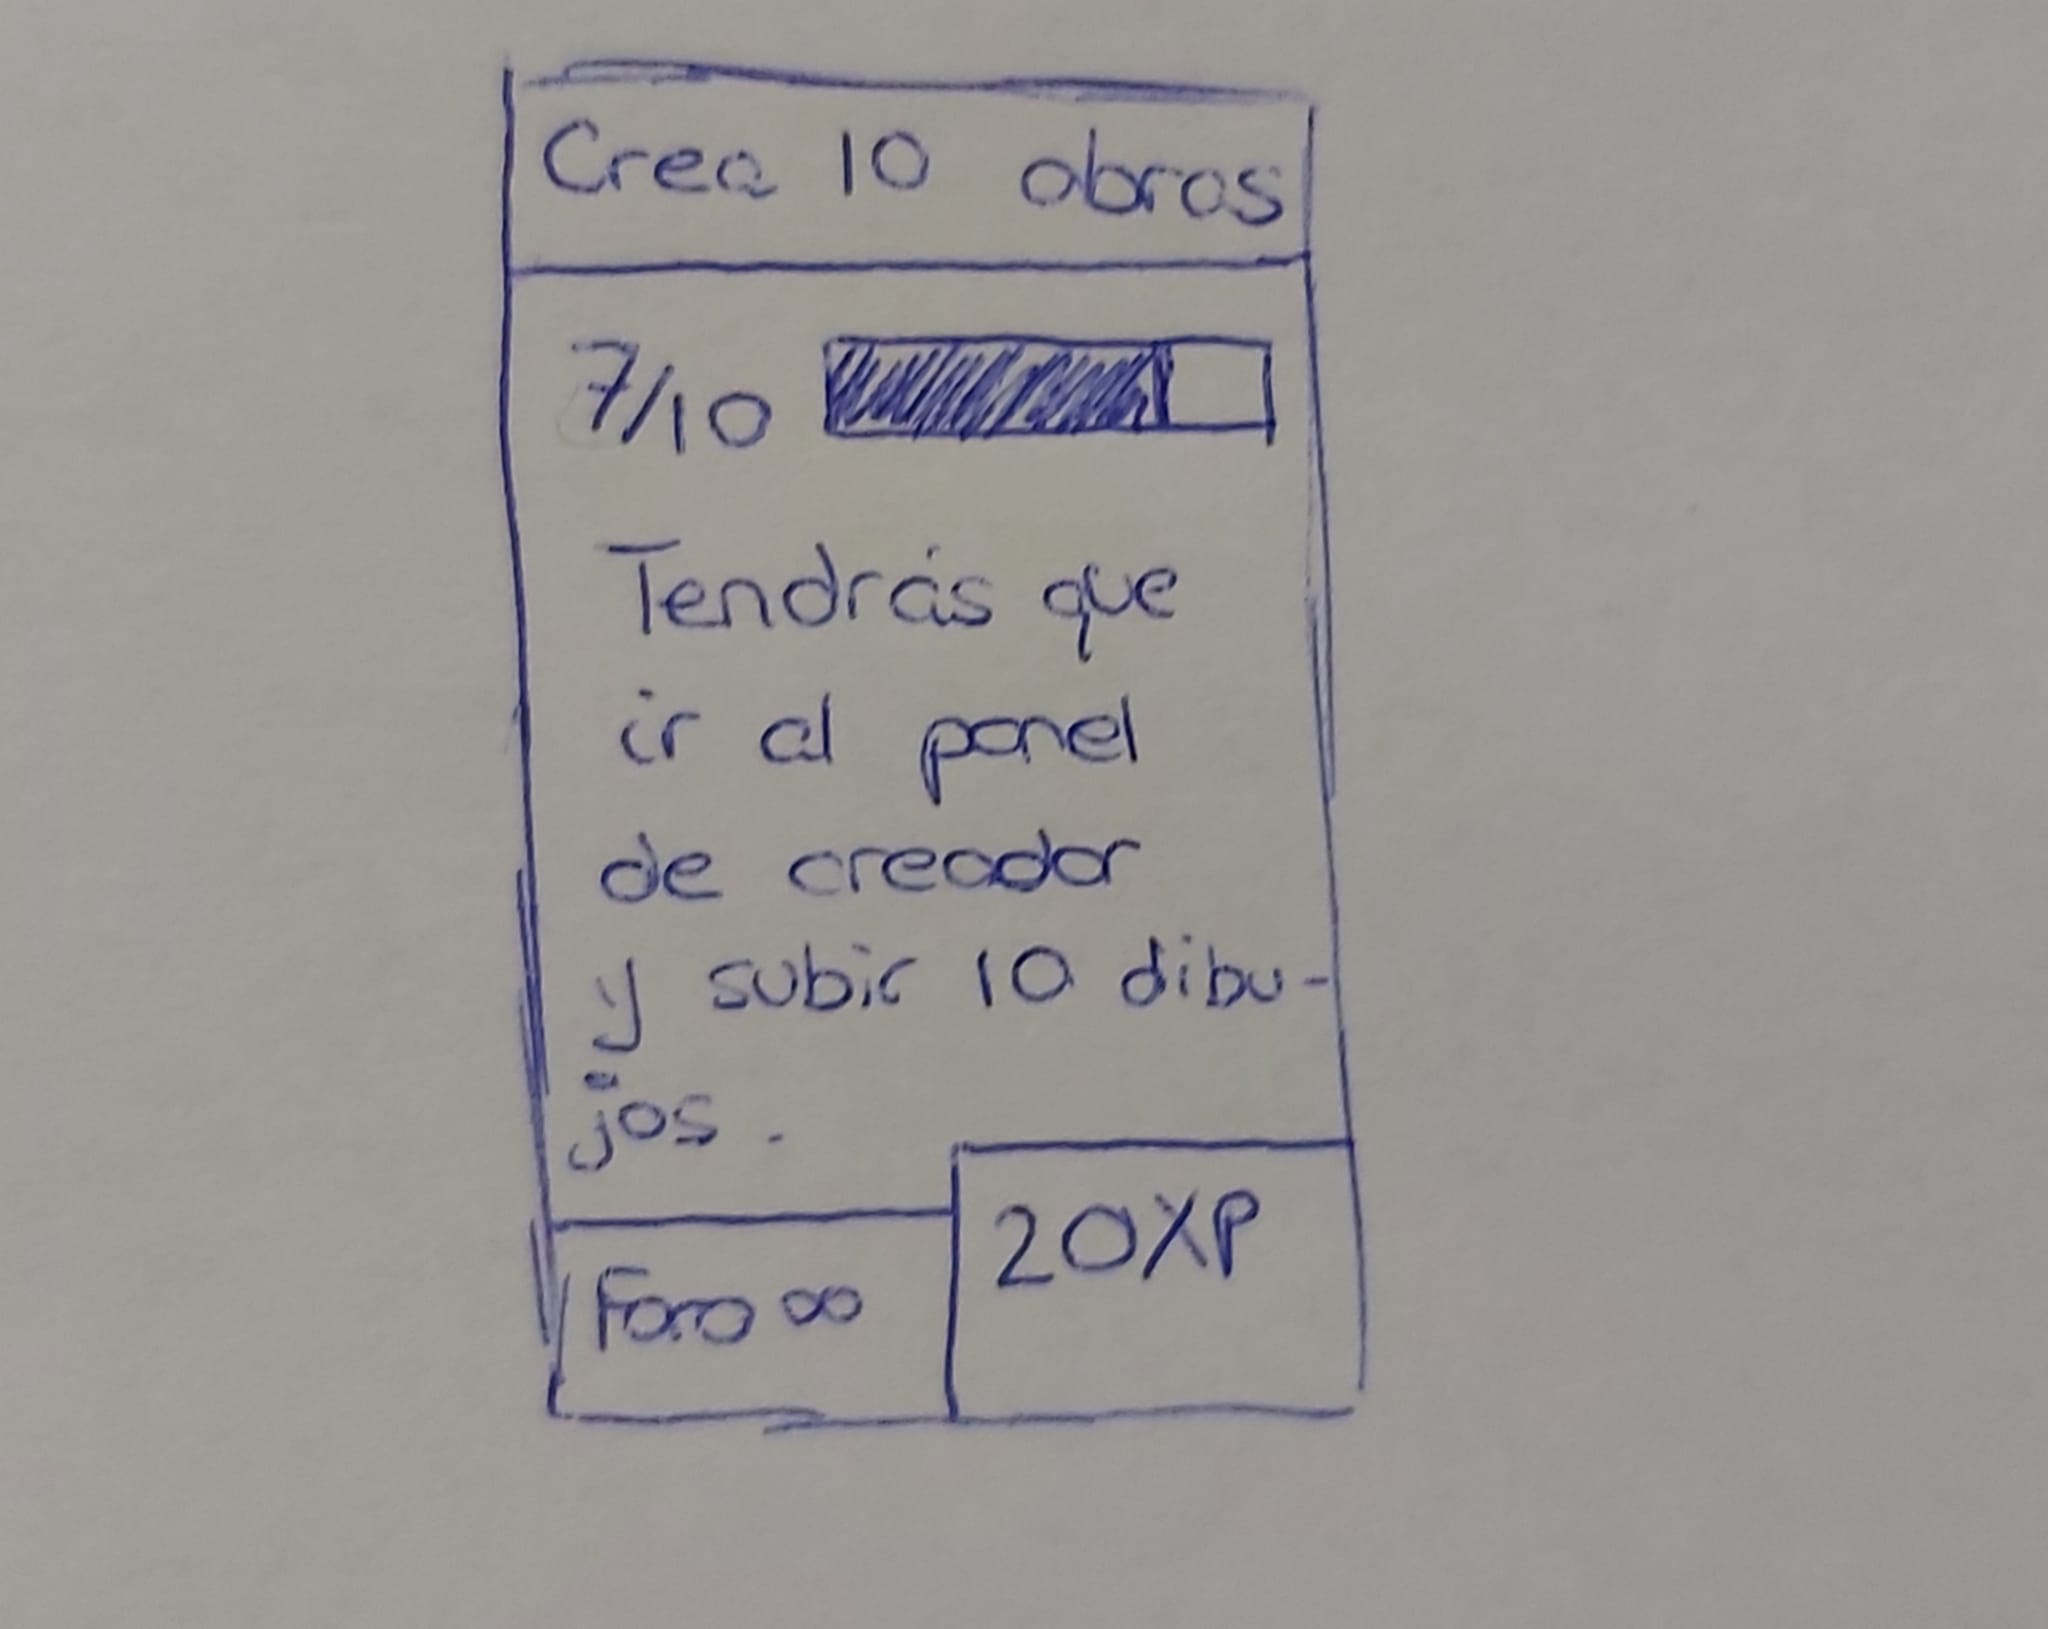 Crea 10 obras
7/10
Tendrás que
ir al panel
de creador
y subir 10 dibu-
jos.
Foro ∞
20XP